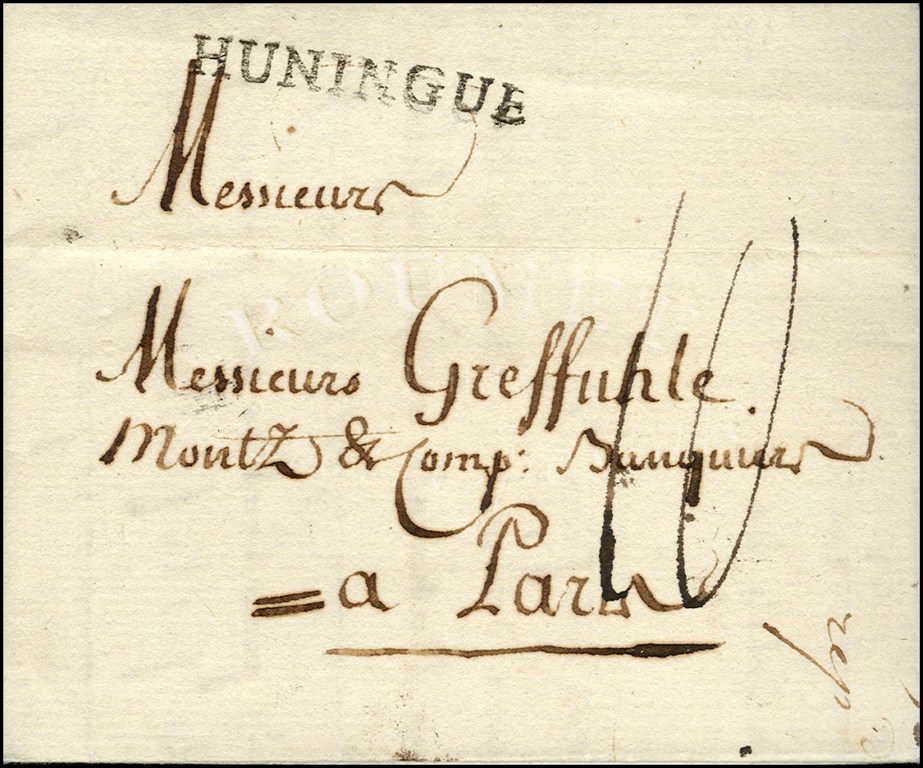 HUNINGUE
Messieurs
ROUMET
Messieurs Greffuhle.
Montz & Comp: Banquiers
= a Paris
10